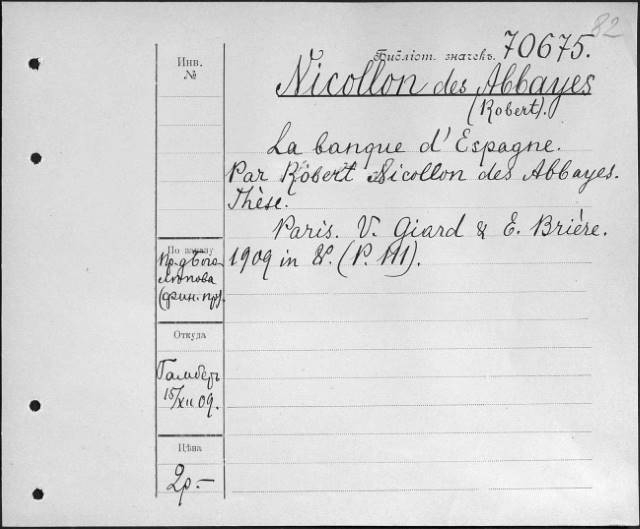 82
Инв.
№
Библіот. значекъ. 70675.
Nicollon des Abbayes
(Robert).
La banque d'Espagne.
Par Robert Nicollon des Abbayes.
Thèse.
Paris. V. Giard & E. Brière.
1909 in 8°. (P. 111).
По заказу
Пр. д. Бого-
лѣпова
(фин. пр).
Откуда
Гамберъ
15/XII 09.
Цѣна
2р.-